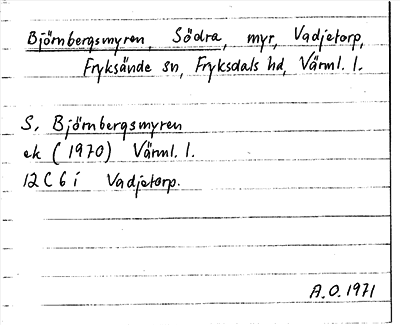 Björnbergsmyren, Södra, myr, Vadjetorp,
Fryksände sn, Fryksdals hd, Värml. l.
S. Björnbergsmyren
ek (1970) Värml. l.
12 C 6 i Vadjetorp.
A.O. 1971